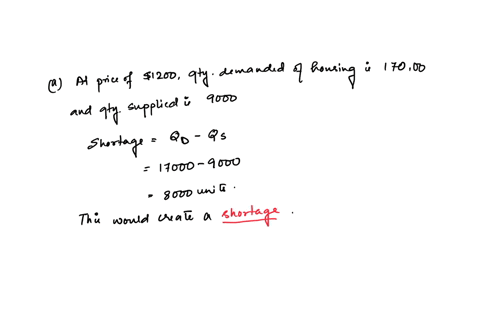 (a) At price of $1200, qty. demanded of housing is 170,00
and qty. supplied is 9000
Shortage = QD - QS
= 17000 - 9000
= 8000 units.
This would create a shortage.